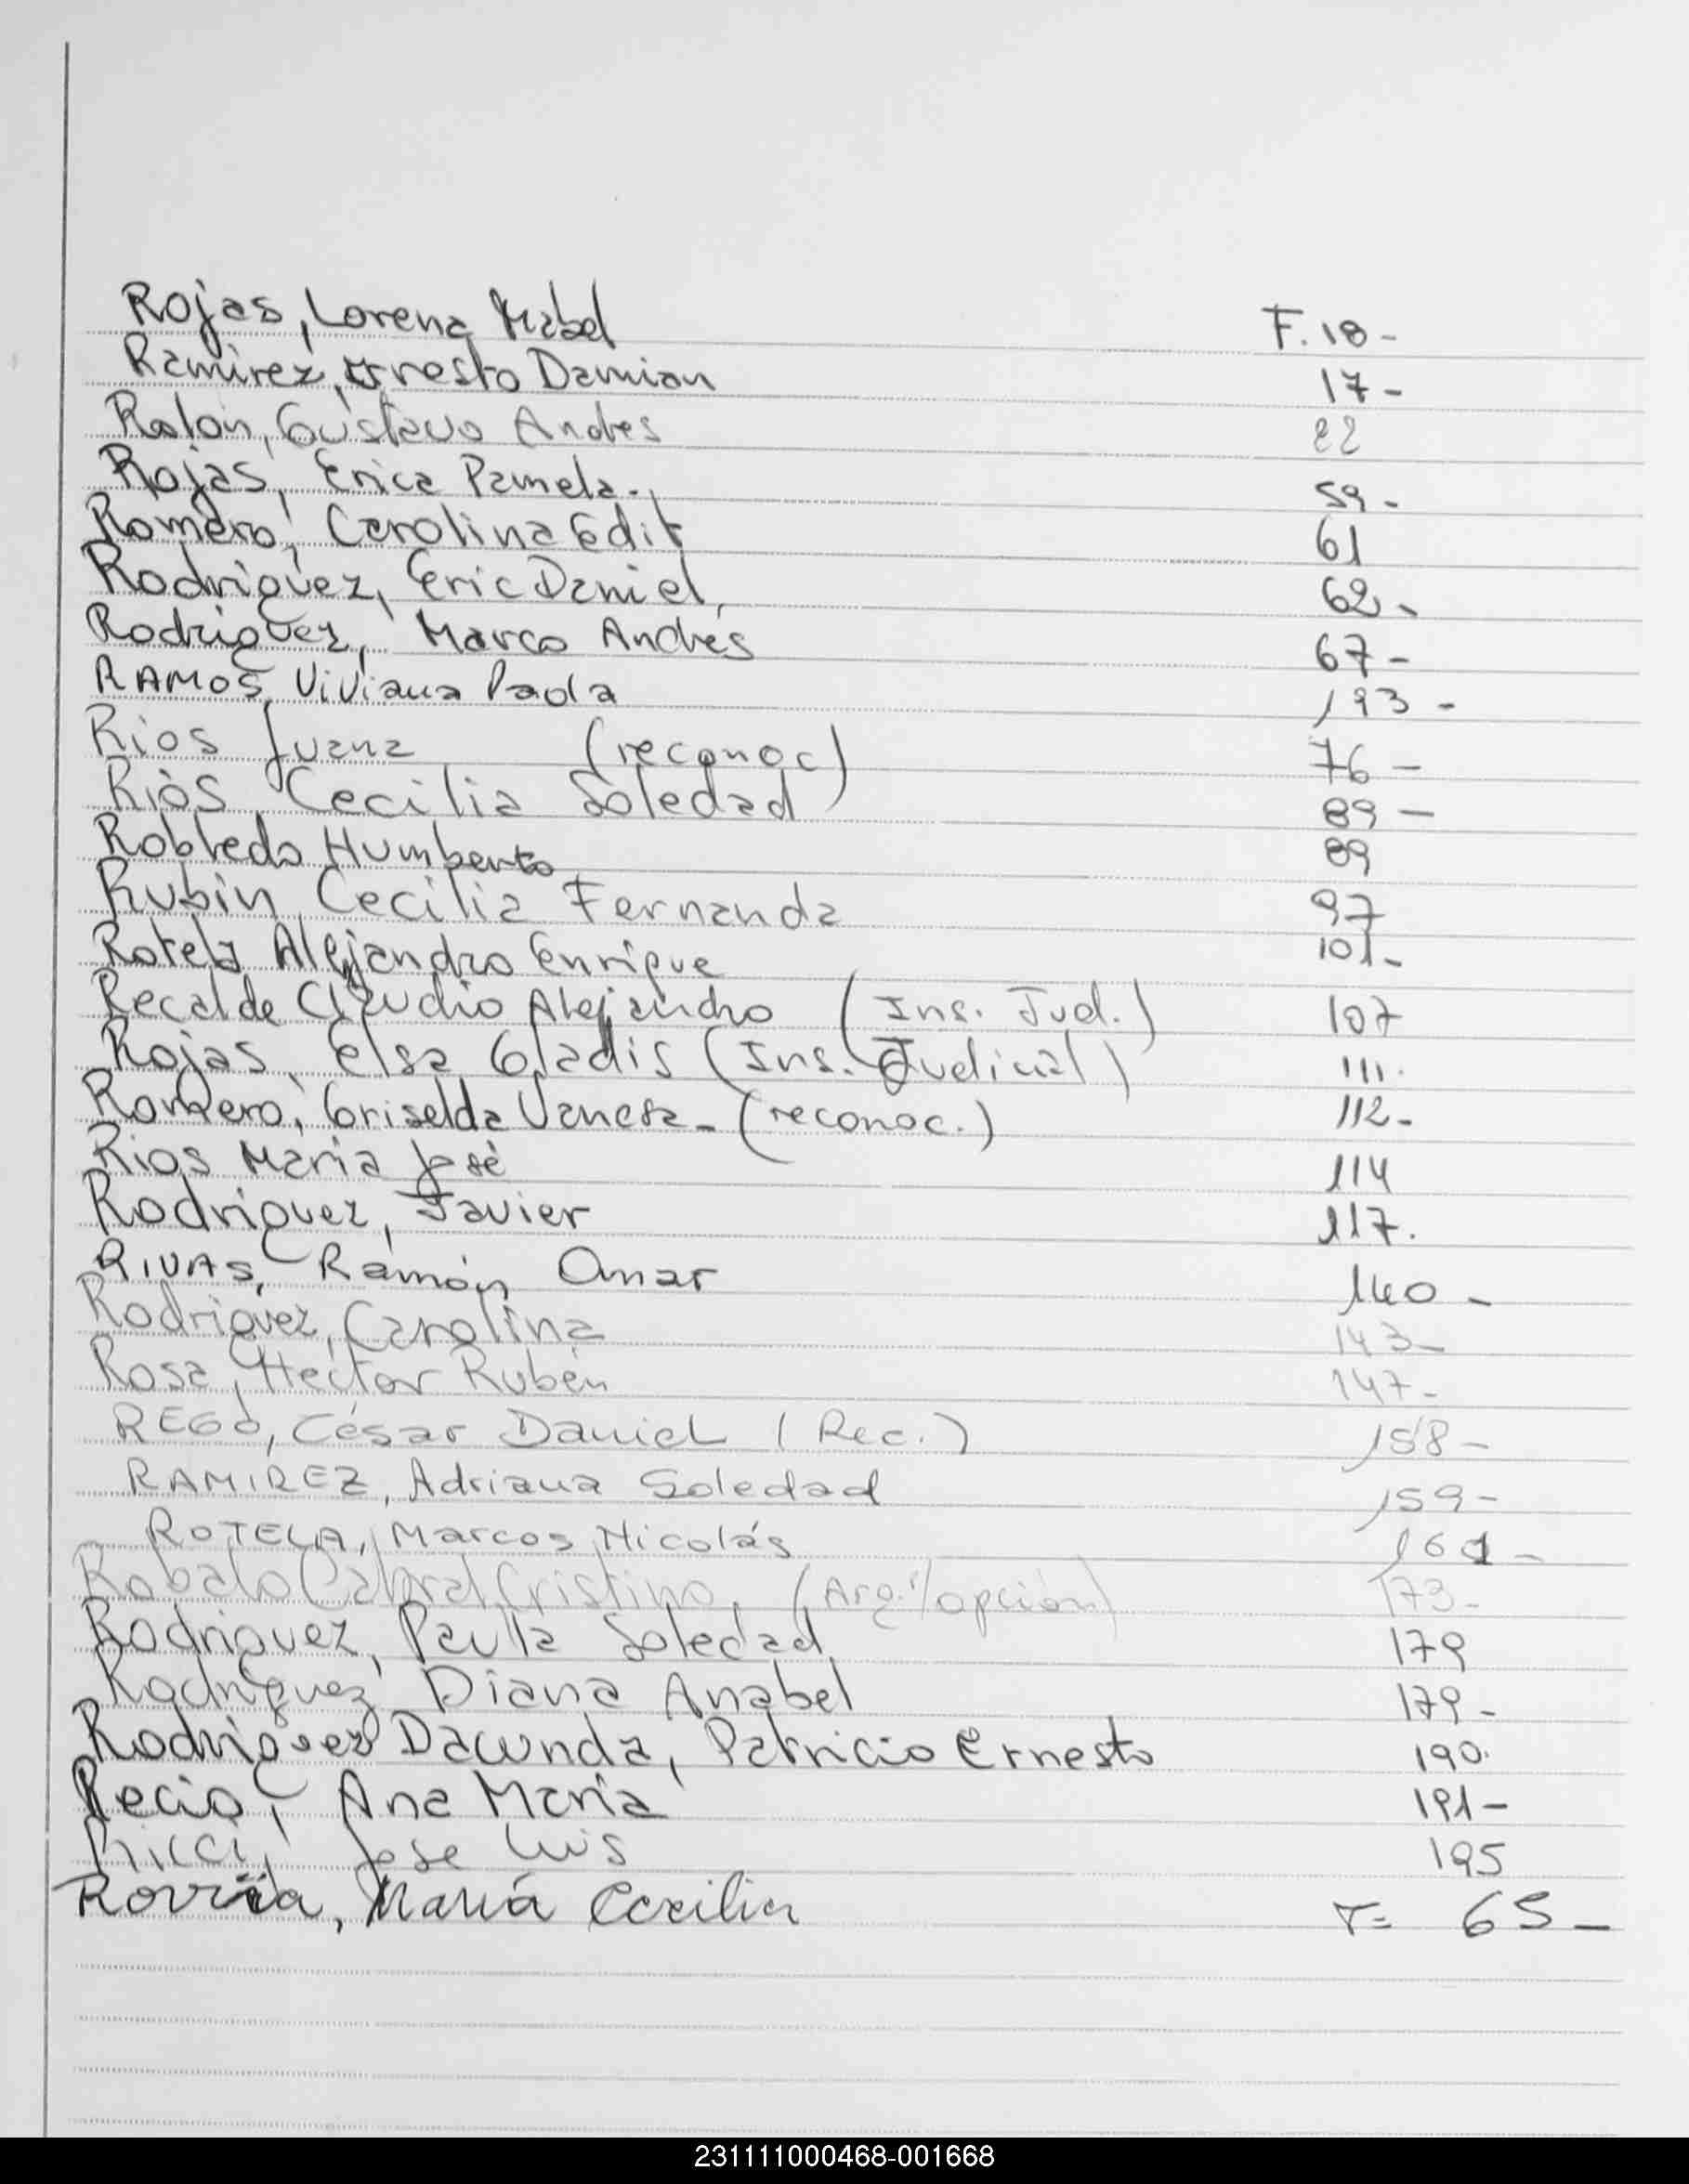 Rojas, Lorena Mabel F. 18-
Ramirez, Ernesto Damian 17-
Ralon, Gustavo Andres 22
Rojas, Erica Pamela. 59-
Romero, Carolina Edit 61
Rodriguez, Eric Daniel, 62-
Rodriguez, Marco Andrés 67-
RAMOS, Viviana Paola 193-
Rios Juana (reconoc) 76-
Rios Cecilia Soledad 89-
Robledo Humberto 89
Rubin Cecilia Fernanda 97
Rotela Alejandro Enrique 101-
Recalde Claudio Alejandro (Ins. Jud.) 107
Rojas, Elsa Gladis (Ins. Judicial) 111.
Romero, Griselda Vanesa- (reconoc.) 112-
Rios Maria José 114
Rodriguez, Javier 117.
RIVAS, Ramón Omar 140-
Rodriguez, Carolina 143-
Rosa, Hector Rubén 147-
REGO, César Daniel (Rec.) 158-
RAMIREZ, Adriana Soledad 159-
ROTELA, Marcos Nicolás 161-
Robalo Cabral Cristino, (Arg. p/opción) 173-
Rodriguez, Paula Soledad 179
Rodriguez Diana Anabel 179-
Rodriguez Dacunda, Patricio Ernesto 190.
Recio, Ana Maria 191-
Ricci, Jose Luis 195
María Cecilia 65-
231111000468-001668